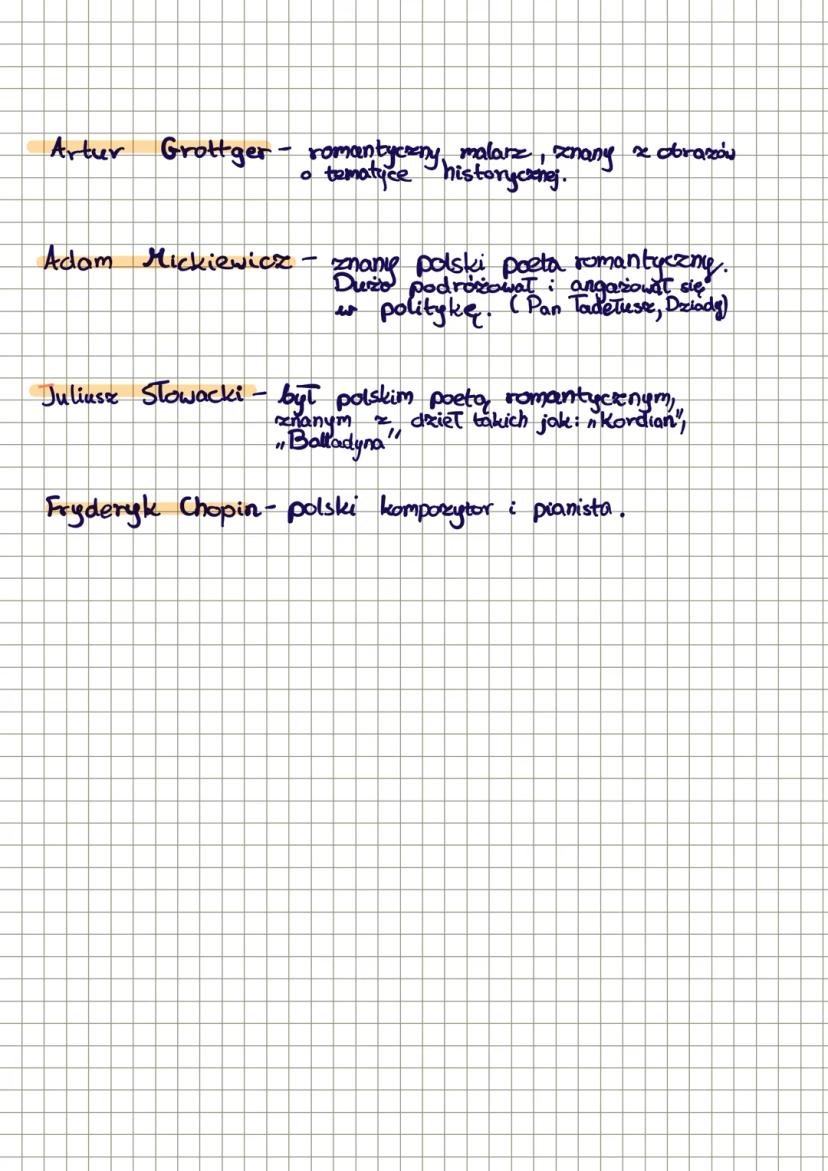 Artur Grottger - romantyczny malarz, znany z obrazów
o tematyce historycznej.
Adam Mickiewicz - znany polski poeta romantyczny.
Dużo podróżował i angażował się
w politykę. (Pan Tadełusz, Dziady)
Juliusz Słowacki - był polskim poetą romantycznym,
znanym z dzieł takich jak: „Kordian",
„Balladyna"
Fryderyk Chopin - polski kompozytor i pianista.